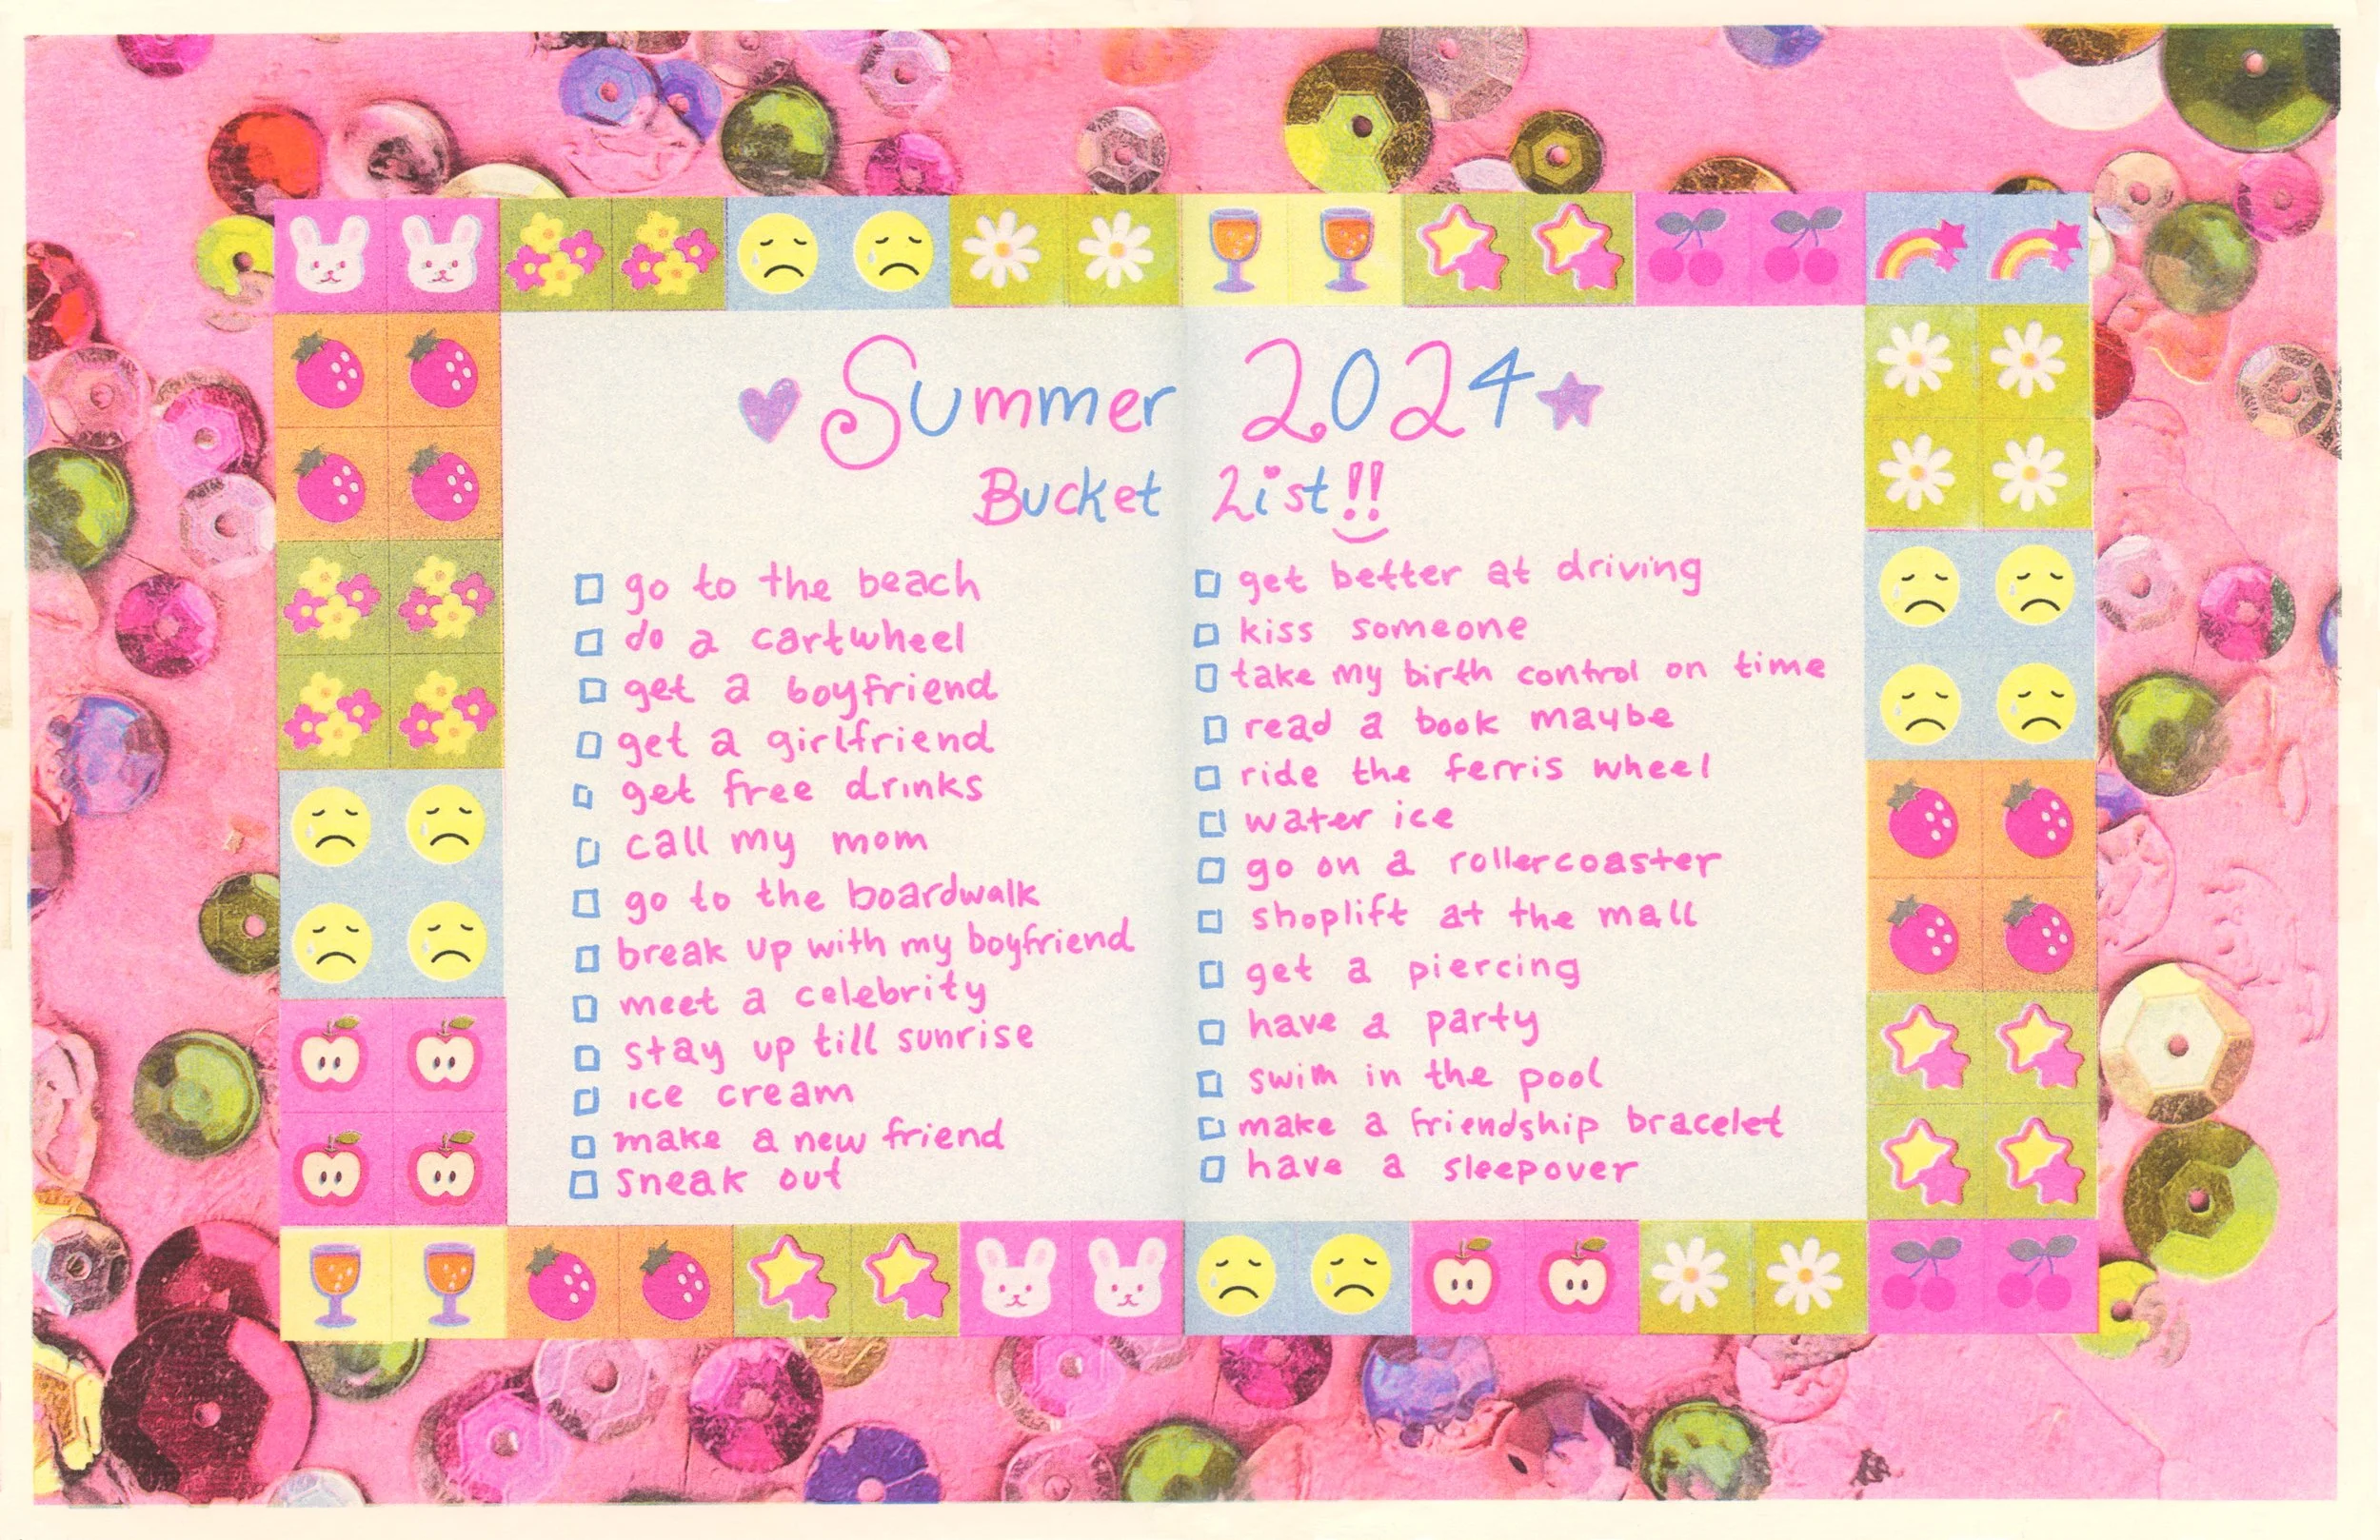 Summer 2024
Bucket List!!
go to the beach
do a cartwheel
get a boyfriend
get a girlfriend
get free drinks
call my mom
go to the boardwalk
break up with my boyfriend
meet a celebrity
stay up till sunrise
ice cream
make a new friend
sneak out
get better at driving
kiss someone
take my birth control on time
read a book maybe
ride the ferris wheel
water ice
go on a rollercoaster
shoplift at the mall
get a piercing
have a party
swim in the pool
make a friendship bracelet
have a sleepover